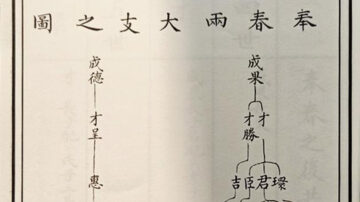 奉春兩大支之圖
成果
才
才勝
環君臣吉
成德
才呈
惠